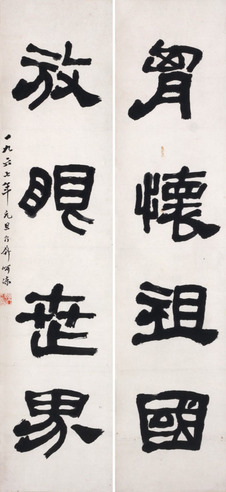 胷懷祖國
放眼世界
一九六七年元旦